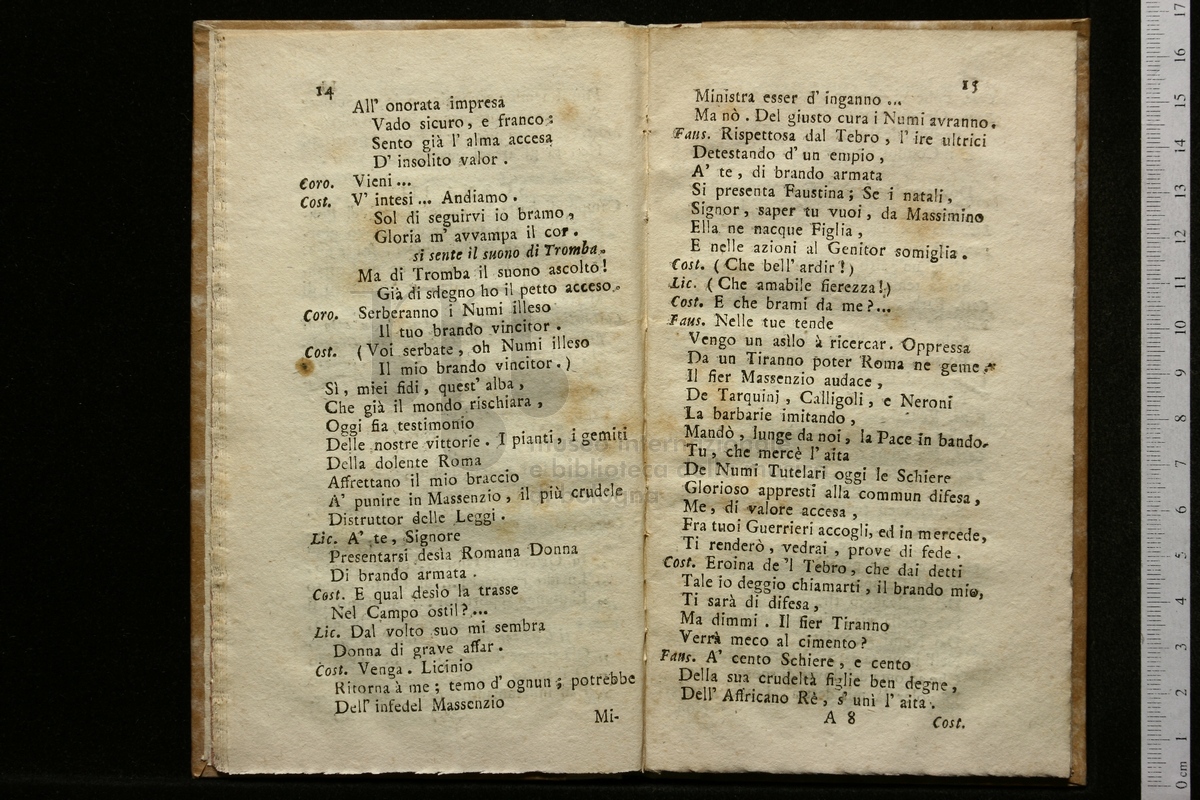 14
All' onorata impresa
Vado sicuro, e franco:
Sento già l' alma accesa
D' insolito valor.
Coro. Vieni...
Cost. V' intesi... Andiamo.
Sol di seguirvi io bramo,
Gloria m' avvampa il cor.
si sente il suono di Tromba.
Ma di Tromba il suono ascolto!
Già di sdegno ho il petto acceso.
Coro. Serberanno i Numi illeso
Il tuo brando vincitor.
Cost. (Voi serbate, oh Numi illeso
Il mio brando vincitor.)
Sì, miei fidi, quest' alba,
Che già il mondo rischiara,
Oggi fia testimonio
Delle nostre vittorie. I pianti, i gemiti
Della dolente Roma
Affrettano il mio braccio
A' punire in Massenzio, il più crudele
Distruttor delle Leggi.
Lic. A' te, Signore
Presentarsi desìa Romana Donna
Di brando armata.
Cost. E qual desìo la trasse
Nel Campo ostil?...
Lic. Dal volto suo mi sembra
Donna di grave affar.
Cost. Venga. Licinio
Ritorna à me; temo d' ognun; potrebbe
Dell' infedel Massenzio
Mi-
15
Ministra esser d' inganno...
Ma nò. Del giusto cura i Numi avranno.
Faus. Rispettosa dal Tebro, l' ire ultrici
Detestando d' un empio,
A' te, di brando armata
Si presenta Faustina; Se i natali,
Signor, saper tu vuoi, da Massimino
Ella ne nacque Figlia,
E nelle azioni al Genitor somiglia.
Cost. (Che bell' ardir!)
Lic. (Che amabile fierezza!)
Cost. E che brami da me?...
Faus. Nelle tue tende
Vengo un asìlo à ricercar. Oppressa
Da un Tiranno poter Roma ne geme.
Il fier Massenzio audace,
De Tarquinj, Calligoli, e Neroni
La barbarie imitando,
Mandò, lunge da noi, la Pace in bando.
Tu, che mercè l' aita
De Numi Tutelari oggi le Schiere
Glorioso appresti alla commun difesa,
Me, di valore accesa,
Fra tuoi Guerrieri accogli, ed in mercede,
Ti renderò, vedrai, prove di fede.
Cost. Eroina de 'l Tebro, che dai detti
Tale io deggio chiamarti, il brando mio,
Ti sarà di difesa,
Ma dimmi. Il fier Tiranno
Verrà meco al cimento?
Faus. A' cento Schiere, e cento
Della sua crudeltà figlie ben degne,
Dell' Affricano Rè, s' unì l' aita.
A 8
Cost.
museo internazionale
e biblioteca della